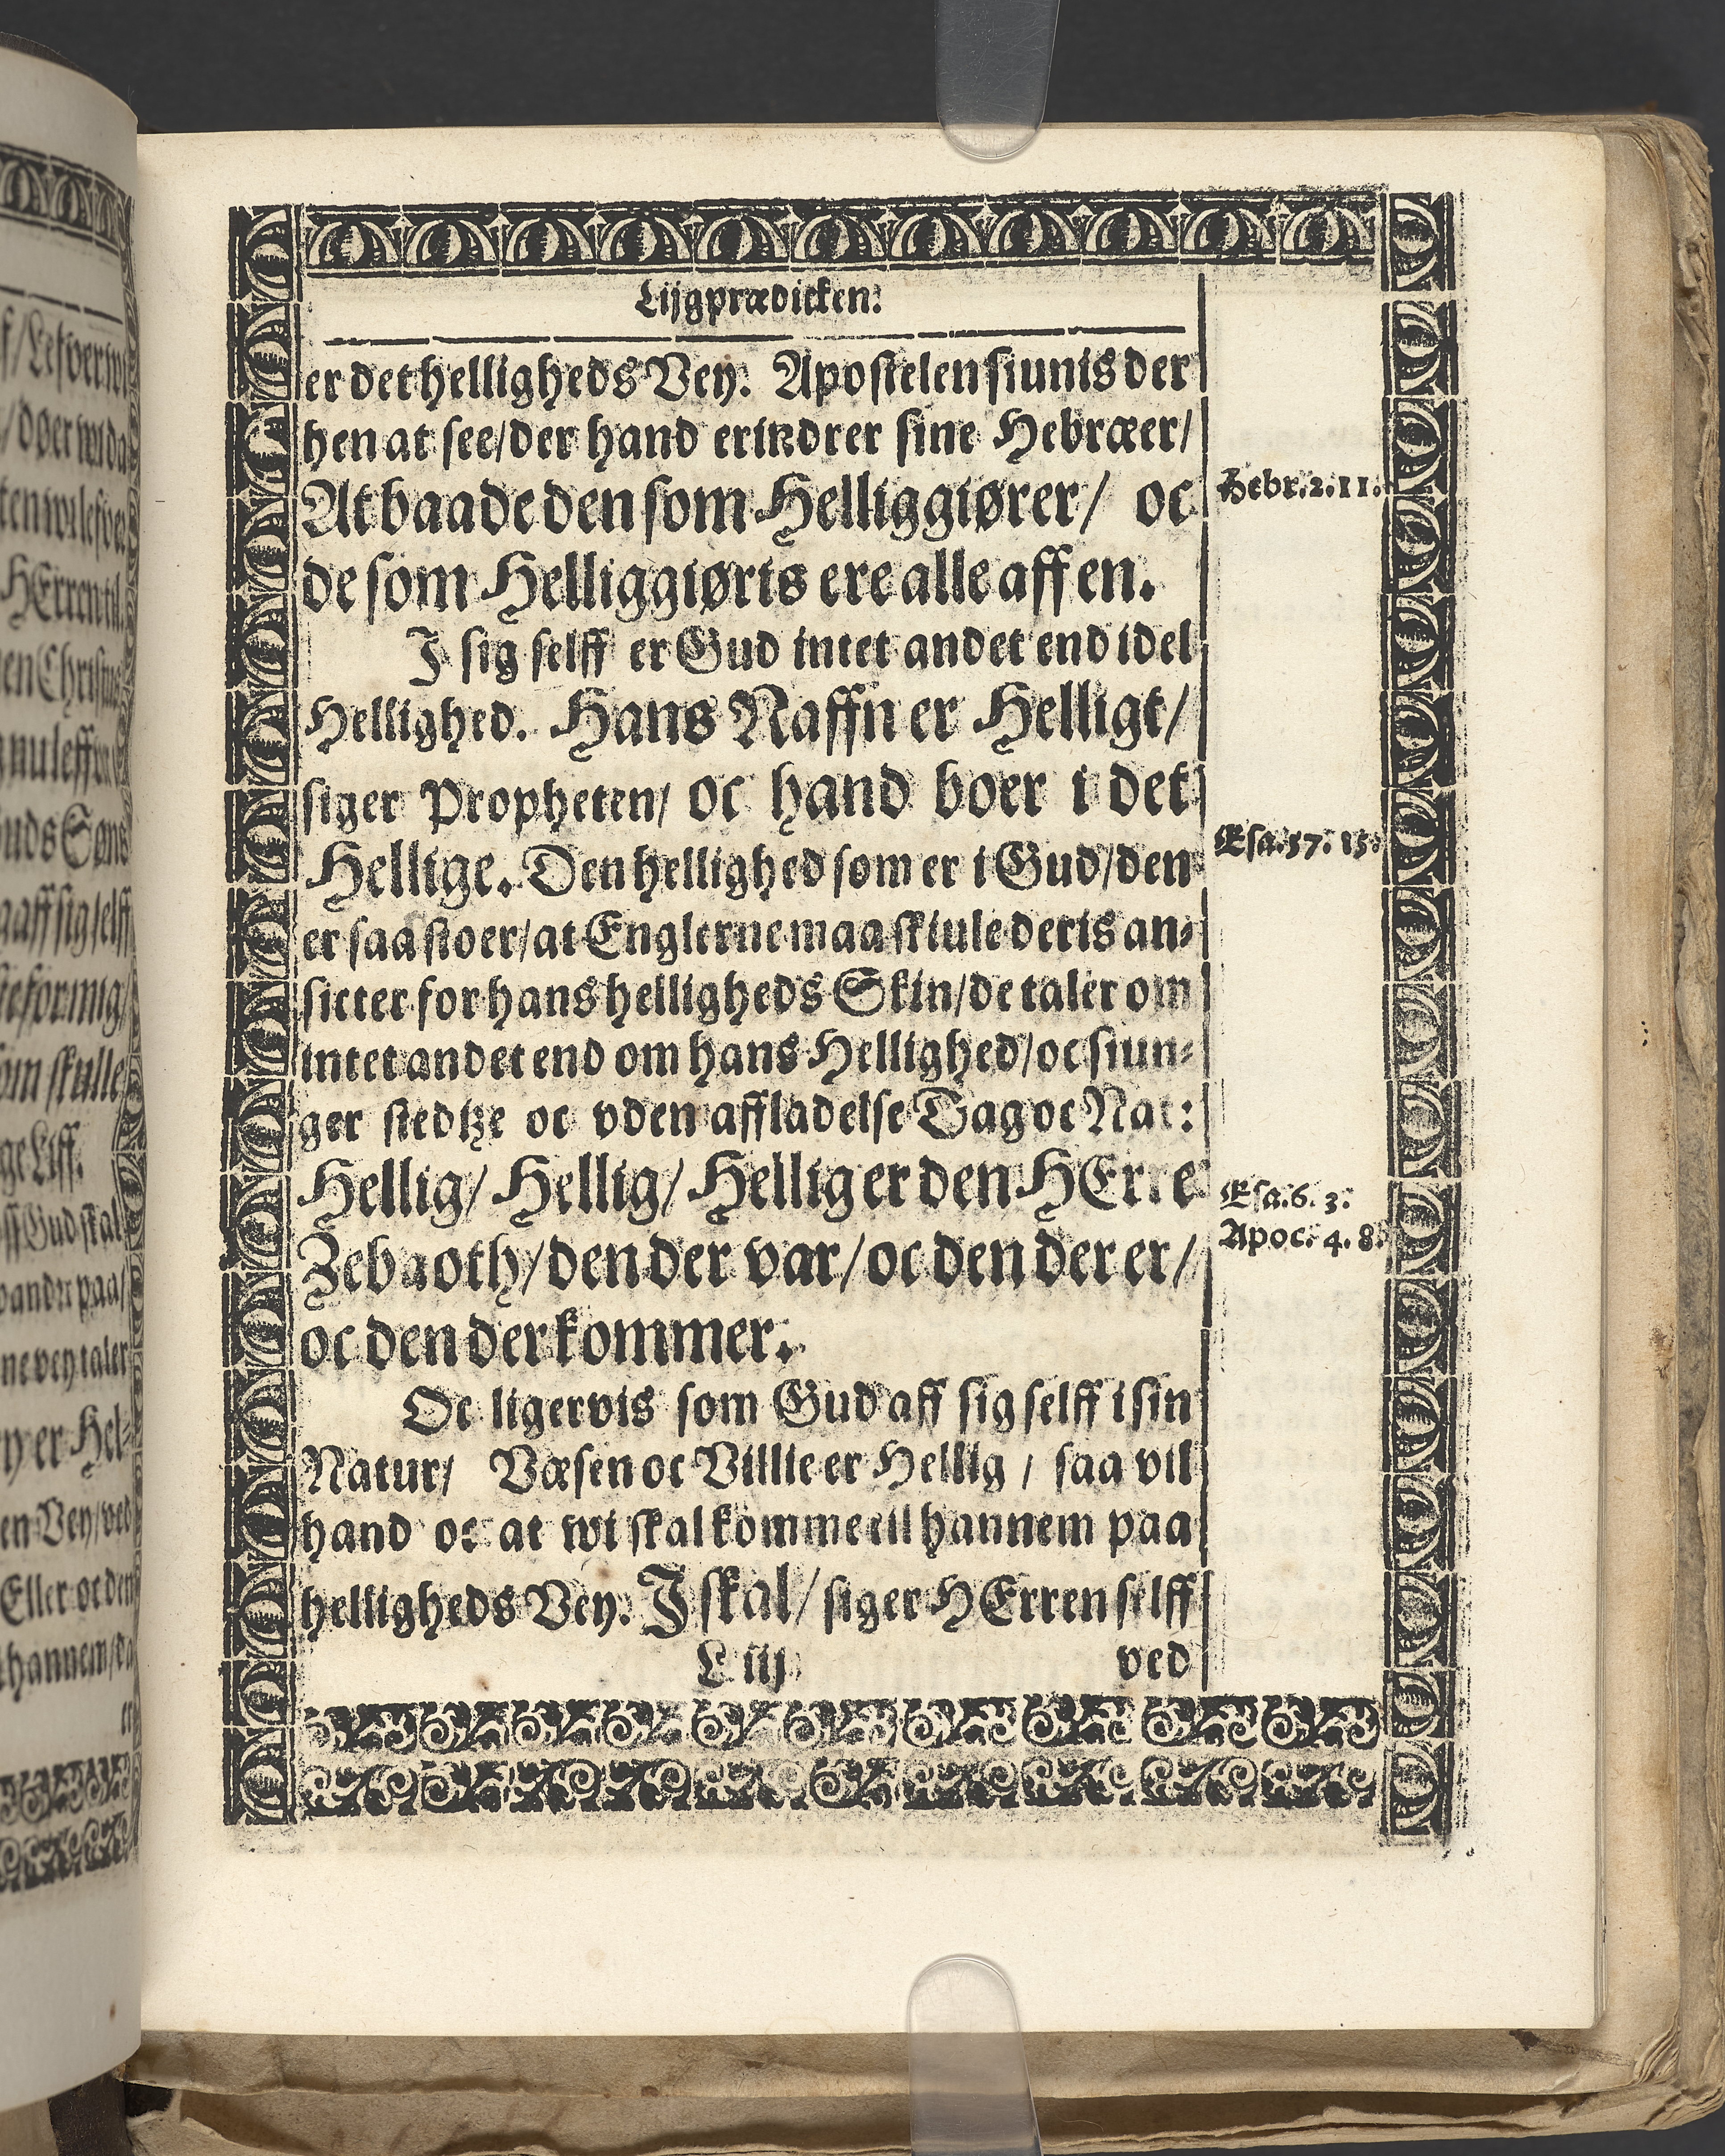 Lijgprædicken.
er det helligheds Vey. Apostelen siunis der
hen at see/der hand erindrer sine Hebræer/
At baade den som Helliggiører/ oc
Hebr. 2. 11.
de som Helliggiøris ere alle aff en.
I sig selff er Gud intet andet end idel
Hellighed. Hans Naffn er Helligt/
siger Propheten/ oc hand boer i det
Hellige. Den hellighed som er i Gud/den
Esa. 57. 15.
er saa stoer/at Englerne maa skiule deris an-
sicter for hans helligheds Skin/de taler om
intet andet end om hans Hellighed/oc siun-
ger stedtze oc vden affladelse Dag oc Nat:
Hellig/ Hellig/ Hellig er den HErre
Esa. 6. 3.
Zebaoth/den der var/oc den der er/
Apoc. 4. 8.
oc den der kommer.
Oc ligervis som Gud aff sig selff i sin
Natur/ Væsen oc Villie er Hellig / saa vil
hand oc at wi skal komme til hannem paa
helligheds Vey. I skal/ siger HErren selff
L iij
ved
f/Lefver wi
/døer wi da
HErren til.
en Christus
Guds Søns
aff sig selff
om skulle
ge Liff.
Gud skal
paa/
ne vey taler
y er Hel-
en Vey/ved
Eller oc den
hannem/da
er